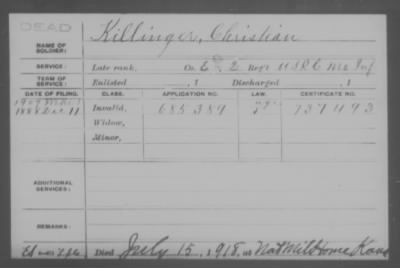 DEAD
NAME OF SOLDIER:
Killinger, Christian
SERVICE:
Late rank, Co. E & E Regt U S R C Mo Inf
TERM OF SERVICE:
Enlisted , 1 Discharged , 1
DATE OF FILING. CLASS. APPLICATION NO. LAW. CERTIFICATE NO.
1888 Dec 11 Invalid, 685389 737493
Widow,
Minor,
ADDITIONAL SERVICES:
REMARKS:
Died July 15, 1918, at Nat Mil Home Kans